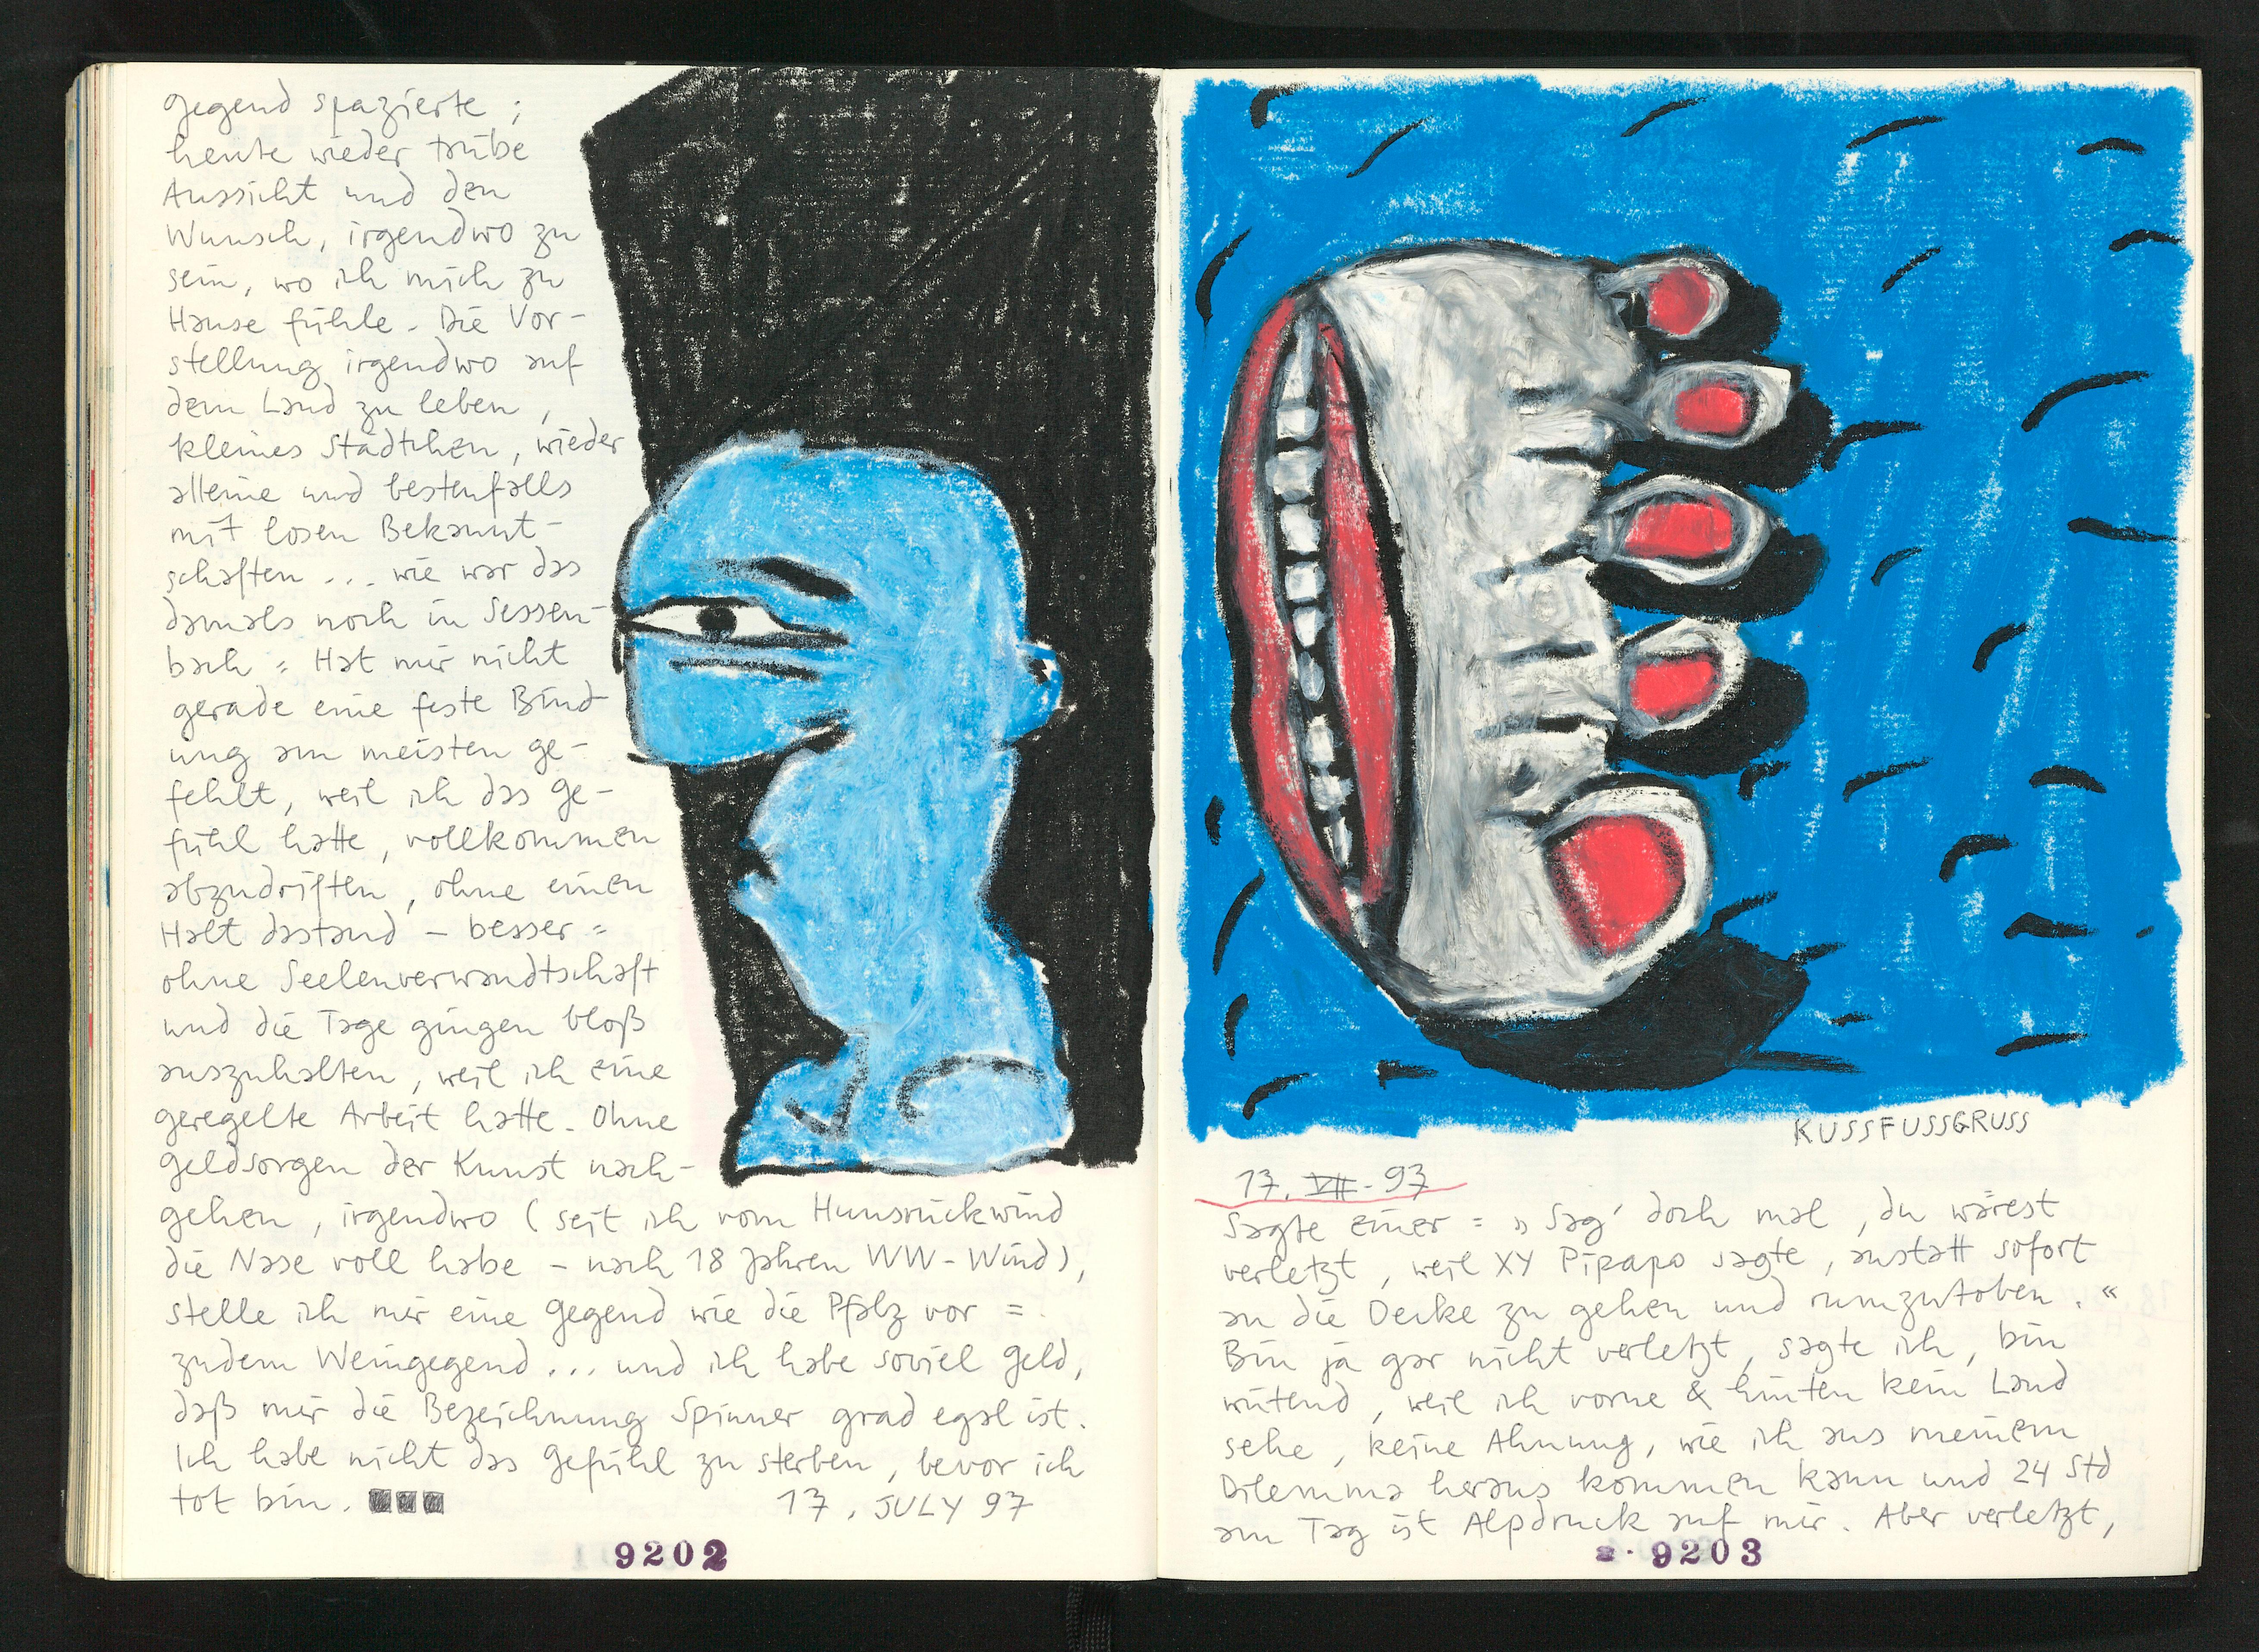 gegend spazierte ;
heute wieder trübe
Aussicht und den
Wunsch, irgendwo zu
sein, wo ich mich zu
Hause fühle. Die Vor-
stellung irgendwo auf
dem Land zu leben,
kleines Städtchen, wieder
alleine und bestenfalls
mit losen Bekannt-
schaften ... wie war das
damals noch in Sessen-
bach = Hat mir nicht
gerade eine feste Bind
ung am meisten ge-
fehlt, weil ich das Ge-
fühl hatte, vollkommen
abzudriften, ohne einen
Halt dastand – besser =
ohne Seelenverwandtschaft
und die Tage gingen bloß
auszuhalten, weil ich eine
geregelte Arbeit hatte. Ohne
Geldsorgen der Kunst nach-
gehen, irgendwo (seit ich vom Hunsrückwind
die Nase voll habe – nach 18 Jahren WW-Wind),
stelle ich mir eine Gegend wie die Pfalz vor =
zudem Weingegend ... und ich habe soviel Geld,
daß mir die Bezeichnung Spinner grad egal ist.
Ich habe nicht das Gefühl zu sterben, bevor ich
tot bin.
17. JULY 97
9202
KUSSFUSSGRUSS
17. VII. 97
Sagte einer = „Sag' doch mal, du wärest
verletzt, weil XY Pipapo sagte, anstatt sofort
an die Decke zu gehen und rumzutoben."
Bin ja gar nicht verletzt, sagte ich, bin
wütend, weil ich vorne & hinten kein Land
sehe, keine Ahnung, wie ich aus meinem
Dilemma heraus kommen kann und 24 Std
am Tag ist Alpdruck auf mir. Aber verletzt,
9203